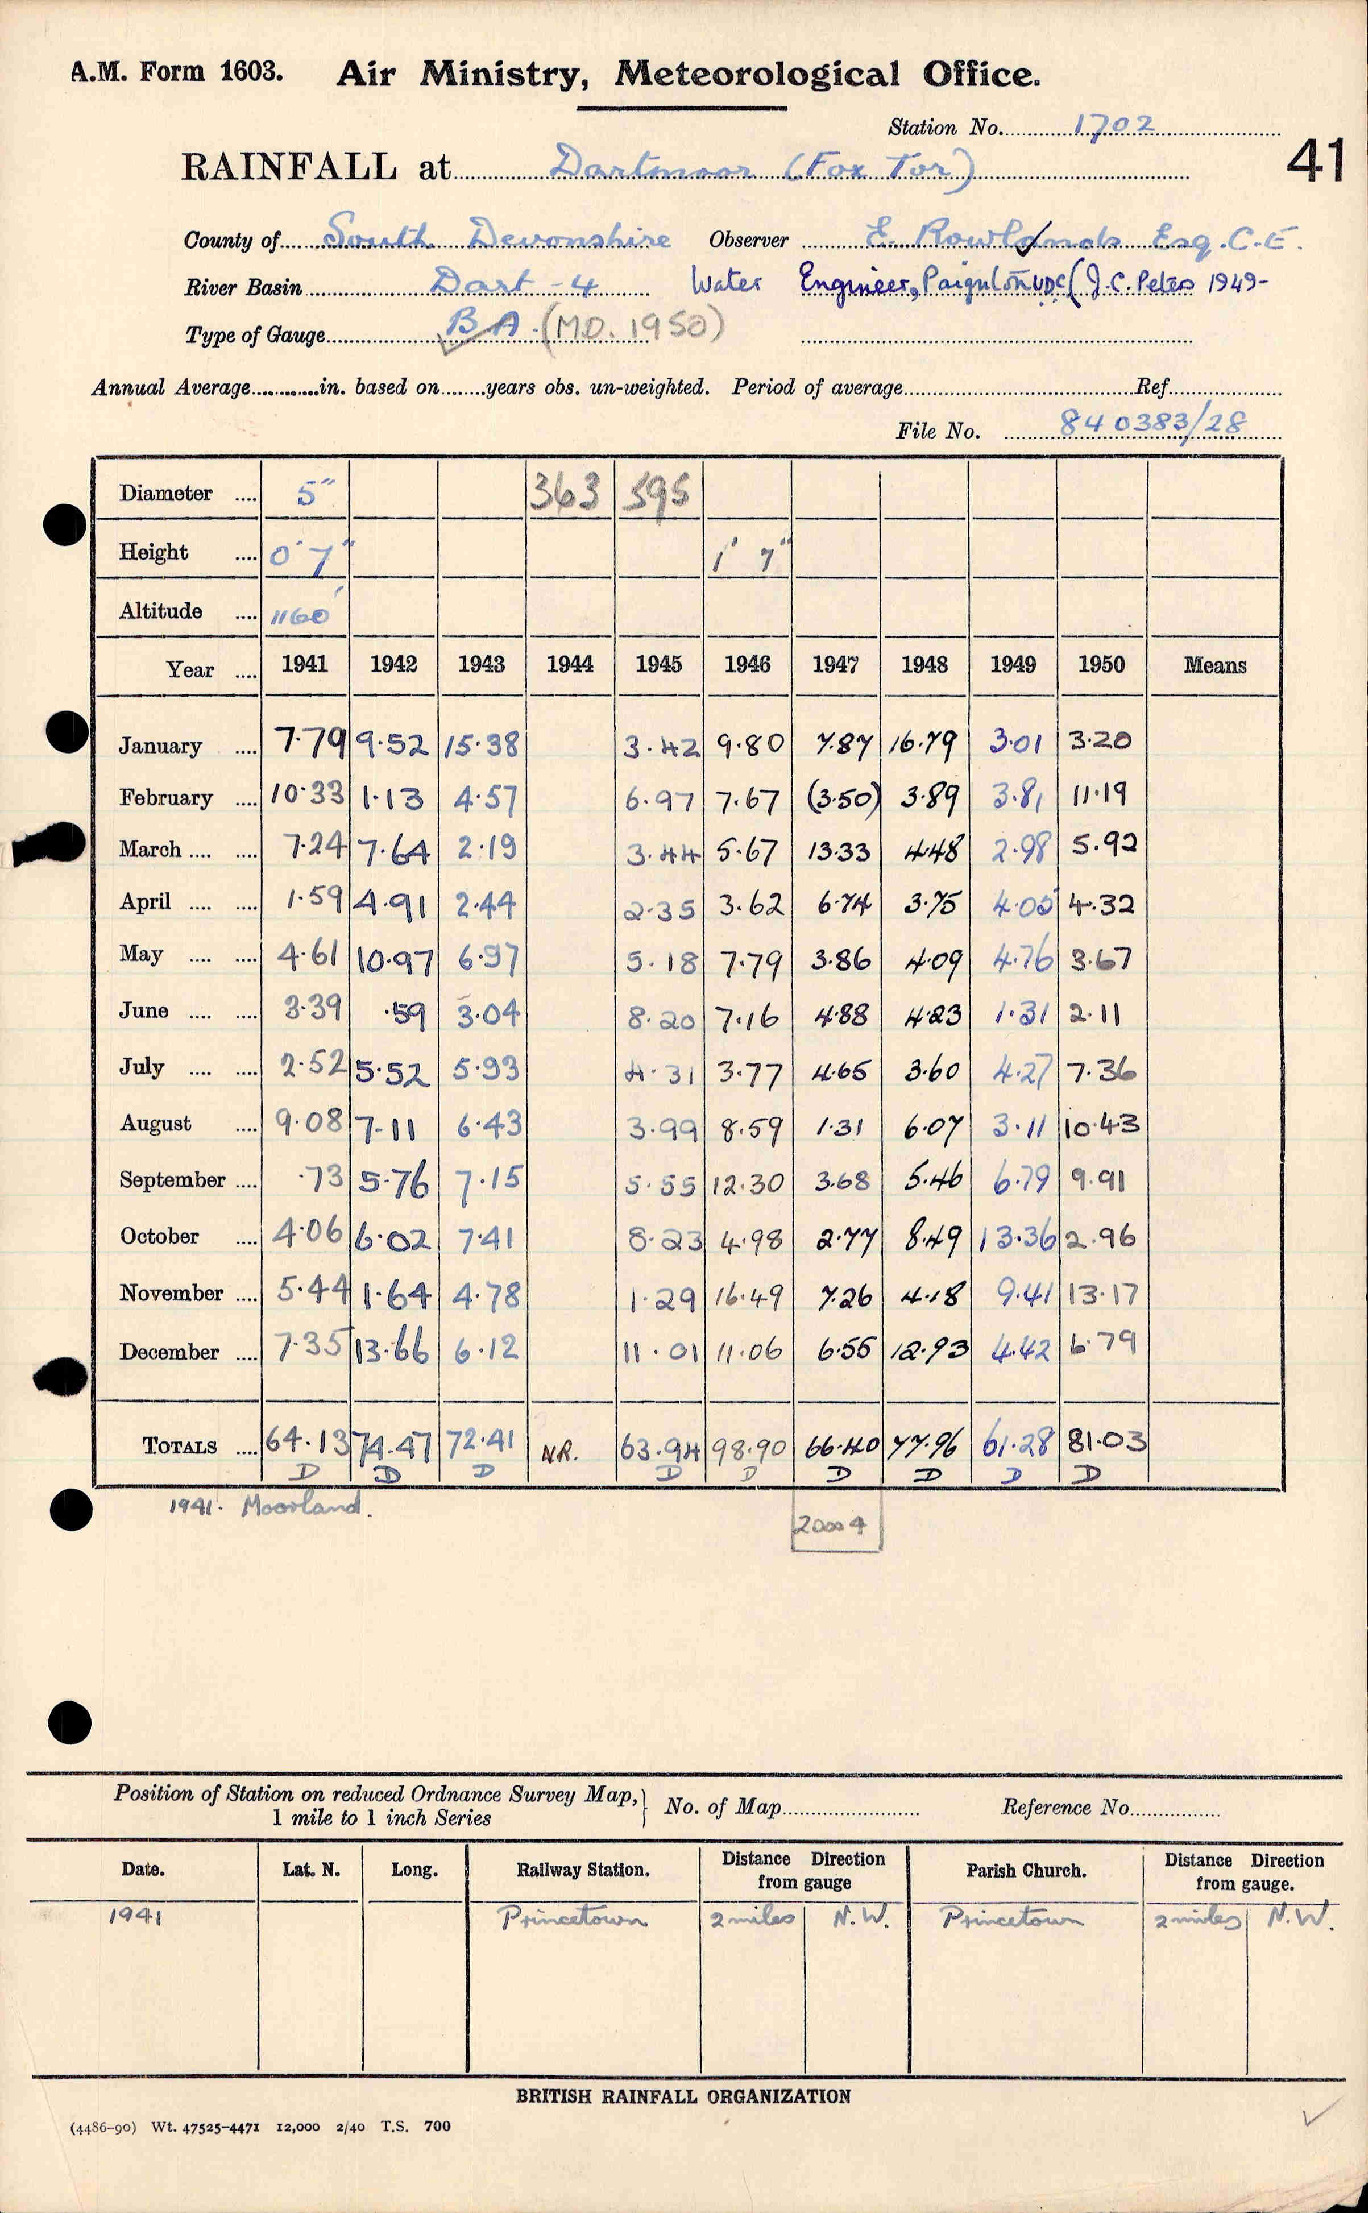 A.M. Form 1603. Air Ministry, Meteorological Office.
Station No. 1702
41
RAINFALL at Dartmoor (Fox Tor)
County of South Devonshire Observer E. Rowlands Esq. C.E.
River Basin Dart - 4 Water Engineer, Paignton UDC (J.C. Peters 1949-
Type of Gauge B A. (M.O. 1950)
Annual Average in. based on years obs. un-weighted. Period of average Ref
File No. 840383/28
Diameter .... 5" 363 595
Height .... 0' 7" 1' 7"
Altitude .... 1160'
Year .... 1941 1942 1943 1944 1945 1946 1947 1948 1949 1950 Means
January .... 7.79 9.52 15.38 3.42 9.80 7.87 16.79 3.01 3.20
February .... 10.33 1.13 4.57 6.97 7.67 (3.50) 3.89 3.81 11.19
March .... .... 7.24 7.64 2.19 3.44 5.67 13.33 4.48 2.98 5.92
April .... .... 1.59 4.91 2.44 2.35 3.62 6.74 3.75 4.05 4.32
May .... .... 4.61 10.97 6.97 5.18 7.79 3.86 4.09 4.76 3.67
June .... .... 3.39 .59 3.04 8.20 7.16 4.88 4.23 1.31 2.11
July .... .... 2.52 5.52 5.93 4.31 3.77 4.65 3.60 4.27 7.36
August .... 9.08 7.11 6.43 3.99 8.59 1.31 6.07 3.11 10.43
September .... .73 5.76 7.15 5.55 12.30 3.68 5.46 6.79 9.91
October .... 4.06 6.02 7.41 8.23 4.98 2.77 8.49 13.36 2.96
November .... 5.44 1.64 4.78 1.29 16.49 7.26 4.18 9.41 13.17
December .... 7.35 13.66 6.12 11.01 11.06 6.55 12.93 4.42 6.79
TOTALS .... 64.13 74.47 72.41 N.R. 63.94 98.90 66.40 77.96 61.28 81.03
D D D D D D D D D
1941. Moorland.
20004
Position of Station on reduced Ordnance Survey Map, 1 mile to 1 inch Series } No. of Map Reference No.
Date. Lat. N. Long. Railway Station. Distance Direction from gauge Parish Church. Distance Direction from gauge.
1941 Princetown 2 miles N.W. Princetown 2 miles N.W.
BRITISH RAINFALL ORGANIZATION
(4486-90) Wt. 47525-4471 12,000 2/40 T.S. 700